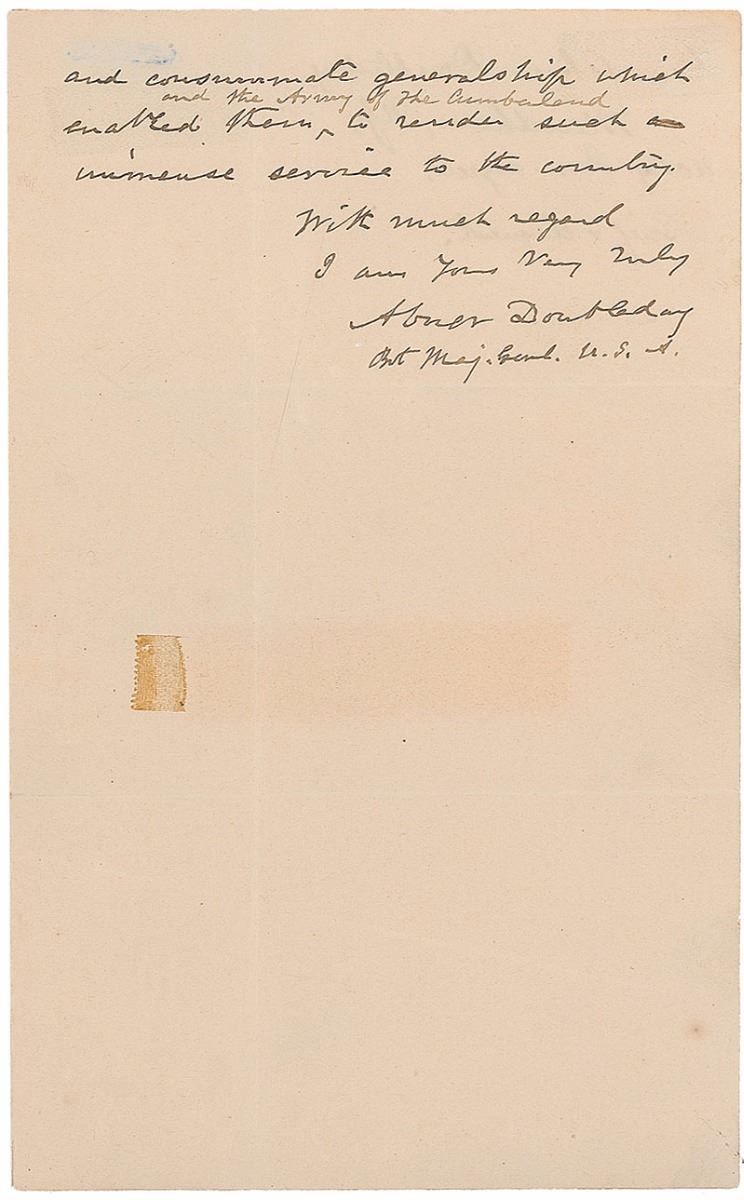 and consummate generalship which
and the Army of the Cumberland
enabled them ‸ to render such
immense service to the country.
With much regard
I am Yours Very truly
Abner Doubleday
Bvt Maj. Genl. U. S. A.